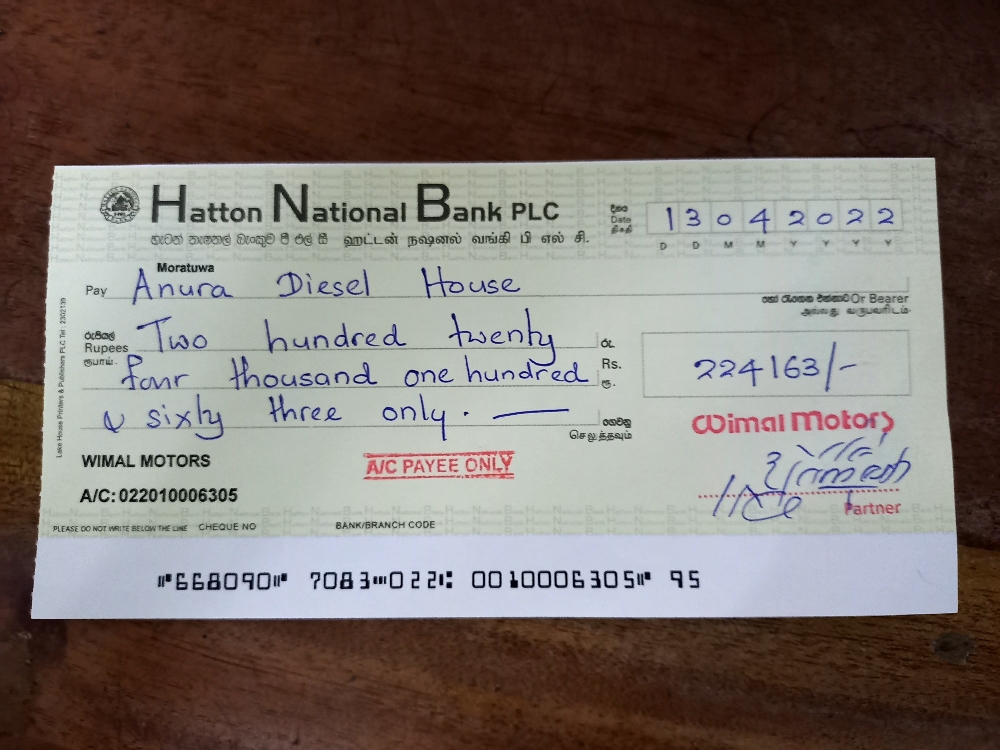 Hatton National Bank PLC
හැටන් නැෂනල් බෑංකුව පී එල් සී ஹட்டன் நஷனல் வங்கி பி எல் சி.
දිනය
Date
திகதி
1 3 0 4 2 0 2 2
D D M M Y Y Y Y
Moratuwa
Pay Anura Diesel House
හෝ රැගෙන එන්නාට Or Bearer
அல்லது வருபவரிடம்
රුපියල්
Rupees Two hundred twenty
ரூபாய்
four thousand one hundred
& sixty three only. —
රු.
Rs.
ரூ.
224163/-
ගෙවනු
செலுத்தவும்
Wimal Motors
WIMAL MOTORS
A/C PAYEE ONLY
A/C: 022010006305
Partner
PLEASE DO NOT WRITE BELOW THE LINE CHEQUE NO BANK/BRANCH CODE
⑈668090⑈ 7083⑉022⑆ 0010006305⑈ 95
Lake House Printers & Publishers PLC Tel : 2302139